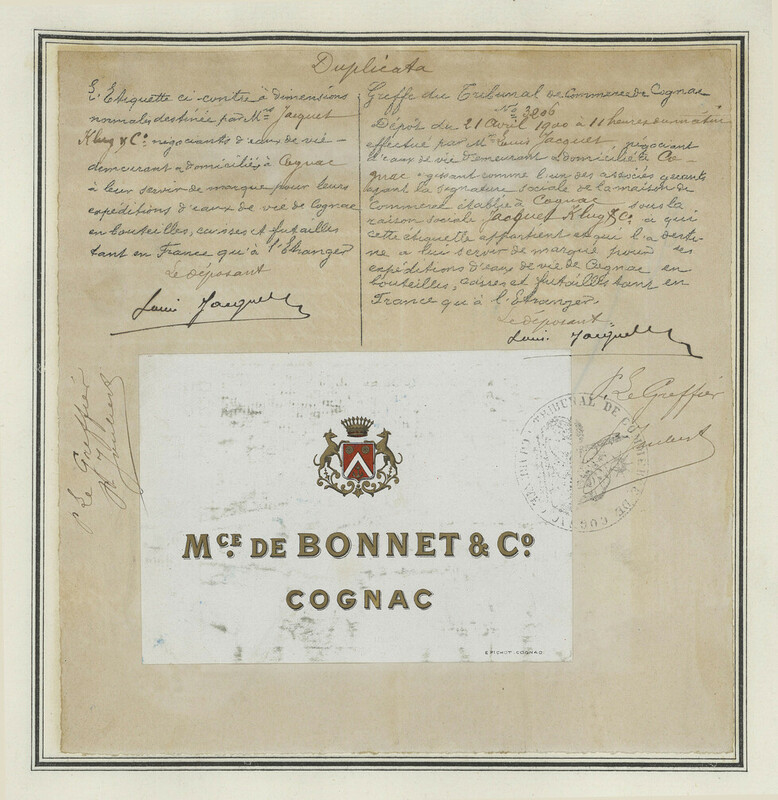 Duplicata
L'Etiquette ci-contre à dimensions
normales destinée par Mrs Jacquet
Klug & Co négociants d'eaux de vie
demeurant & domiciliés à Cognac
à leur servir de marque pour leurs
expéditions d'eaux de vie de Cognac
en bouteilles, caisses et futailles
tant en France qu'à l'Etranger
Le déposant
Louis Jacquet
Greffe du Tribunal de Commerce de Cognac
No 3206
Dépôt du 21 Avril 1900 à 11 heures du matin
effectué par Mr Louis Jacquet, négociant
d'eaux de vie demeurant & domicilié à Co-
gnac agissant comme l'un des associés gérants
ayant la signature sociale de la maison de
Commerce établie à Cognac sous la
raison sociale Jacquet Klug & Co à qui
cette étiquette appartient et qui l'a desti-
née à lui servir de marque pour ses
expéditions d'eaux de vie de Cognac en
bouteilles, caisses et futailles tant en
France qu'à l'Etranger.
Le déposant.
Louis Jacquet
P. Le Greffier
Joubert
P. Le Greffier
Joubert
TRIBUNAL DE COMMERCE DE COGNAC
MCE. DE BONNET & Co.
COGNAC
E. PICHOT. COGNAC